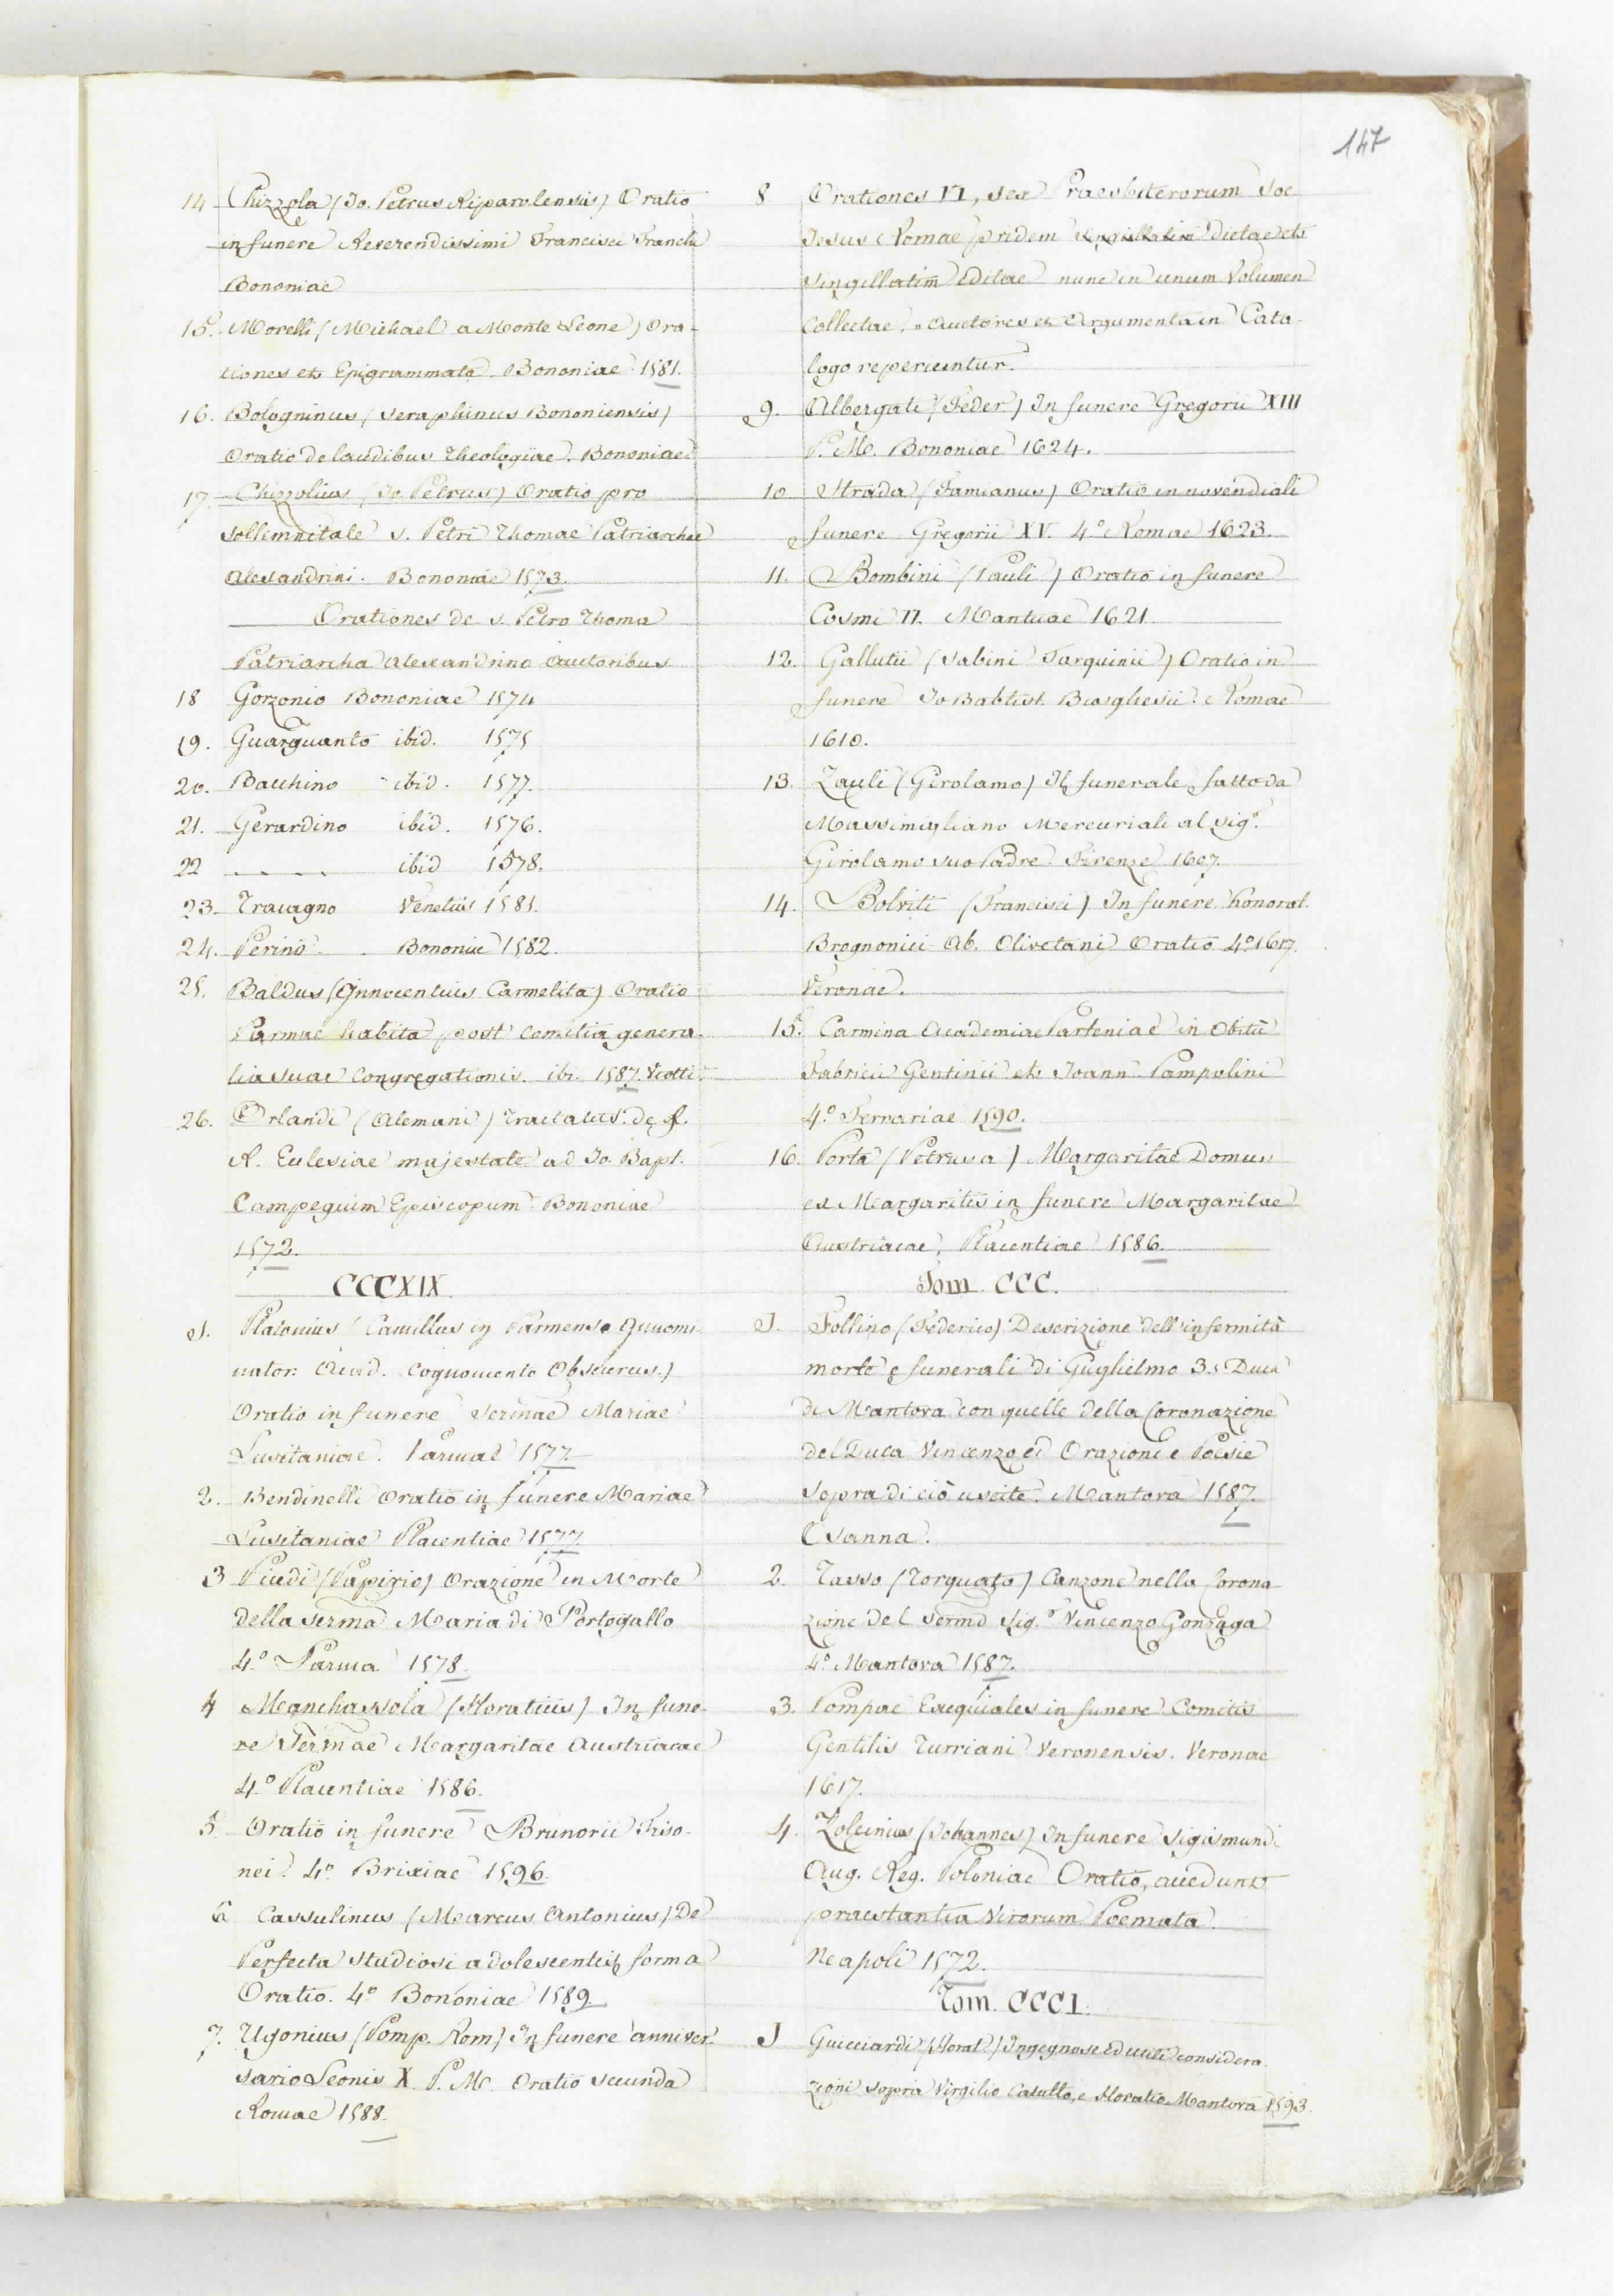 147
14 Chizzola (Jo. Petrus Riparolensis) Oratio
in funere Reverendissimi Francisci Franchi
Bononiae
15. Morelli (Michael a Monte Leone) Ora-
tiones et Epigrammata Bononiae 1581.
16. Bologninus (Seraphinus Bononiensis)
Oratio de laudibus Theologiae. Bononiae
17. Chizzolius (Jo. Petrus) Oratio pro
sollemnitate S. Petri Thomae Patriarchae
Alexandrini. Bononiae 1573.
Orationes de S. Petro Thoma
Patriarcha Alexandrino Auctoribus
18 Gorzonio Bononiae 1574
19. Guarguanto ibid. 1575
20. Bacchino ibid. 1577.
21. Gerardino ibid. 1576.
22 ---- ibid 1578.
23. Travagno Venetiis 1581.
24. Perino Bononiae 1582.
25. Baldus (Innocentius Carmelita) Oratio
Parmae habita post comitia genera-
lia suae Congregationis. ibi. 1587. Viotti.
26. Orlandi (Alemani) Tractatus. de
R. Eclesiae majestate ad Jo. Bapt.
Campeguim Episcopum Bononiae
1572.
CCCXIX.
1. Platonius (Camillus in Parmense Innomi-
nator. Acad. Cognomento Obscurus.)
Oratio in funere Sermae Mariae
Lusitaniae. Parmae 1577.
2. Bendinelli Oratio in funere Mariae
Lusitaniae Placentiae 1577.
3 Picedi (Papirio) Orazione in Morte
della Serma Maria di Portogallo
4.º Parma 1578.
4 Manchassola (Horatius) In fune-
re Sermae Margaritae Austriacae
4.º Placentiae 1586.
5. Oratio in funere Brunorii Friso-
nei. 4.º Brixiae 1596.
6. Cassulinus (Marcus Antonius) De
Perfecta studiosi adolescentis forma
Oratio. 4.º Bononiae 1589.
7. Ugonius (Pomp. Rom) In funere anniver-
sario Leonis X. P. M. Oratio secunda
Romae 1588.
8 Orationes VI, sex Praesbiterorum Soc
Jesus Romae pridem dictae et
singillatim editae nunc in unum Volumen
collectae. Auctores et Argumenta in Cata-
logo reperientur.
9. Albergati (Feder) In funere Gregorii XIII
P. M. Bononiae 1624.
10 Strada (Famianus) Oratio in novendiali
funere Gregorii XV. 4.º Romae 1623.
11. Bombini (Pauli) Oratio in funere
Cosmi II. Mantuae 1621.
12. Gallutii (Sabini Tarquinii) Oratio in
funere Jo Babtist. Burghesii. Romae
1610.
13. Zauli (Girolamo) Il funerale fatto da
Massimigliano Mercuriali al Sigº.
Girolamo suo Padre. Firenze 1607.
14. Bolviti (Francisci) In funere honorat.
Brognonici Ab. Olivetani Oratio 4.º 1617.
Veronae.
15. Carmina Academiae Parteniae in Obitu
Fabricii Gentinii et Joann Pampolini
4.º Ferrariae 1590.
16. Porta (Petrus a) Margaritae Domus
ex Margaritis in funere Margaritae
Austriacae, Placentiae 1586.
Tom CCC.
1. Follino (Federico) Descrizione dell'infermità
morte e funerali di Guglielmo 3.º Duca
di Mantova con quelle della Coronazione
del Duca Vincenzo ed Orazioni e Poesie
sopra di ciò uscite. Mantova 1587.
Osanna.
2. Tasso (Torquato) Canzone nella Corona-
zione del Sermo Sigº Vincenzo Gonzaga
4.º Mantova 1587.
3. Pompae Exequiales in funere Comitis
Gentilis Turriani Veronensis. Veronae
1617.
4. Zolcinius (Johannes) In funere Sigismundi
Aug. Reg. Poloniae Oratio, accedunt
praestantia Virorum Poemata.
Neapoli 1572.
Tom. CCCI.
1 Guicciardi (Horat.) Ingegnose ed utili considera-
zioni sopra Virgilio Catullo, e Horatio Mantova 1593.